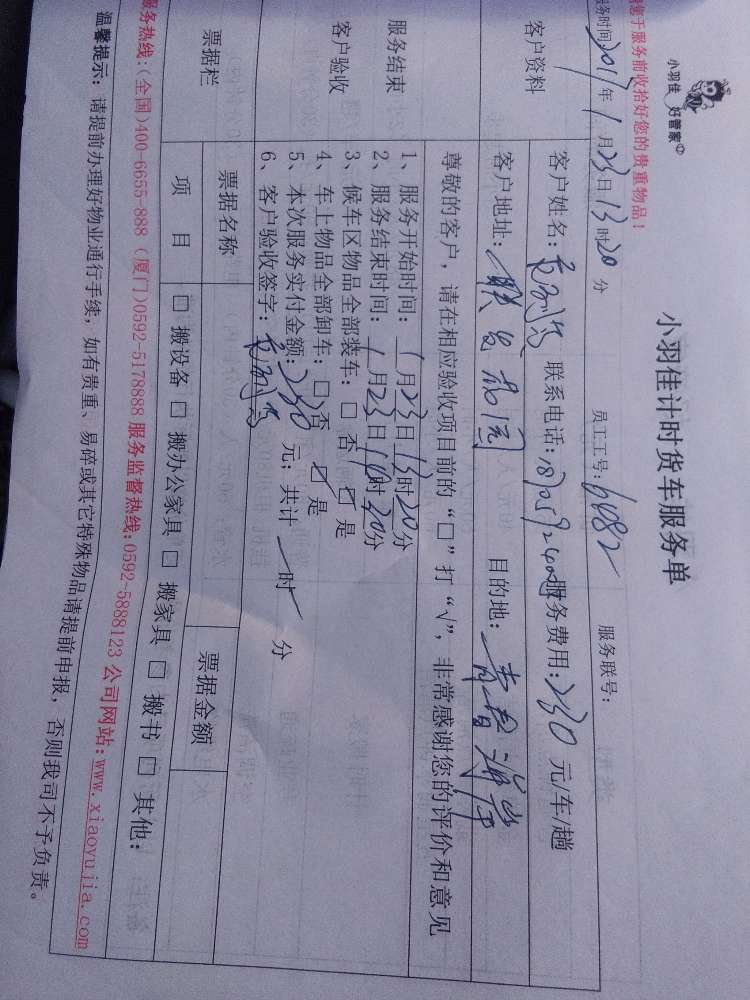 小羽佳 好管家
小羽佳计时货车服务单
于服务前收拾好您的贵重物品！
服务时间2017年1月23日13时20分 员工工号：6082 服务联号：
客户资料
客户姓名： 联系电话： 服务费用：230元/车/趟
客户地址：联发花园 目的地：
尊敬的客户，请在相应验收项目前的“□”打“√”，非常感谢您的评价和意见
服务结束
客户验收
1、服务开始时间：1月23日13时20分
2、服务结束时间：1月23日 时20分
3、候车区物品全部装车：□ 否 ☑ 是
4、车上物品全部卸车：□ 否 ☑ 是
5、本次服务实付金额：230元；共计 时 分
6、客户验收签字：
票据栏 票据名称 票据金额
项目 □ 搬设备 □ 搬办公家具 □ 搬家具 □ 搬书 □ 其他：
服务热线：(全国)400-6655-888 (厦门)0592-5178888 服务监督热线:0592-5888123 公司网站:www.xiaoyujia.com
温馨提示：请提前办理好物业通行手续，如有贵重、易碎或其它特殊物品请提前申报，否则我司不予负责。